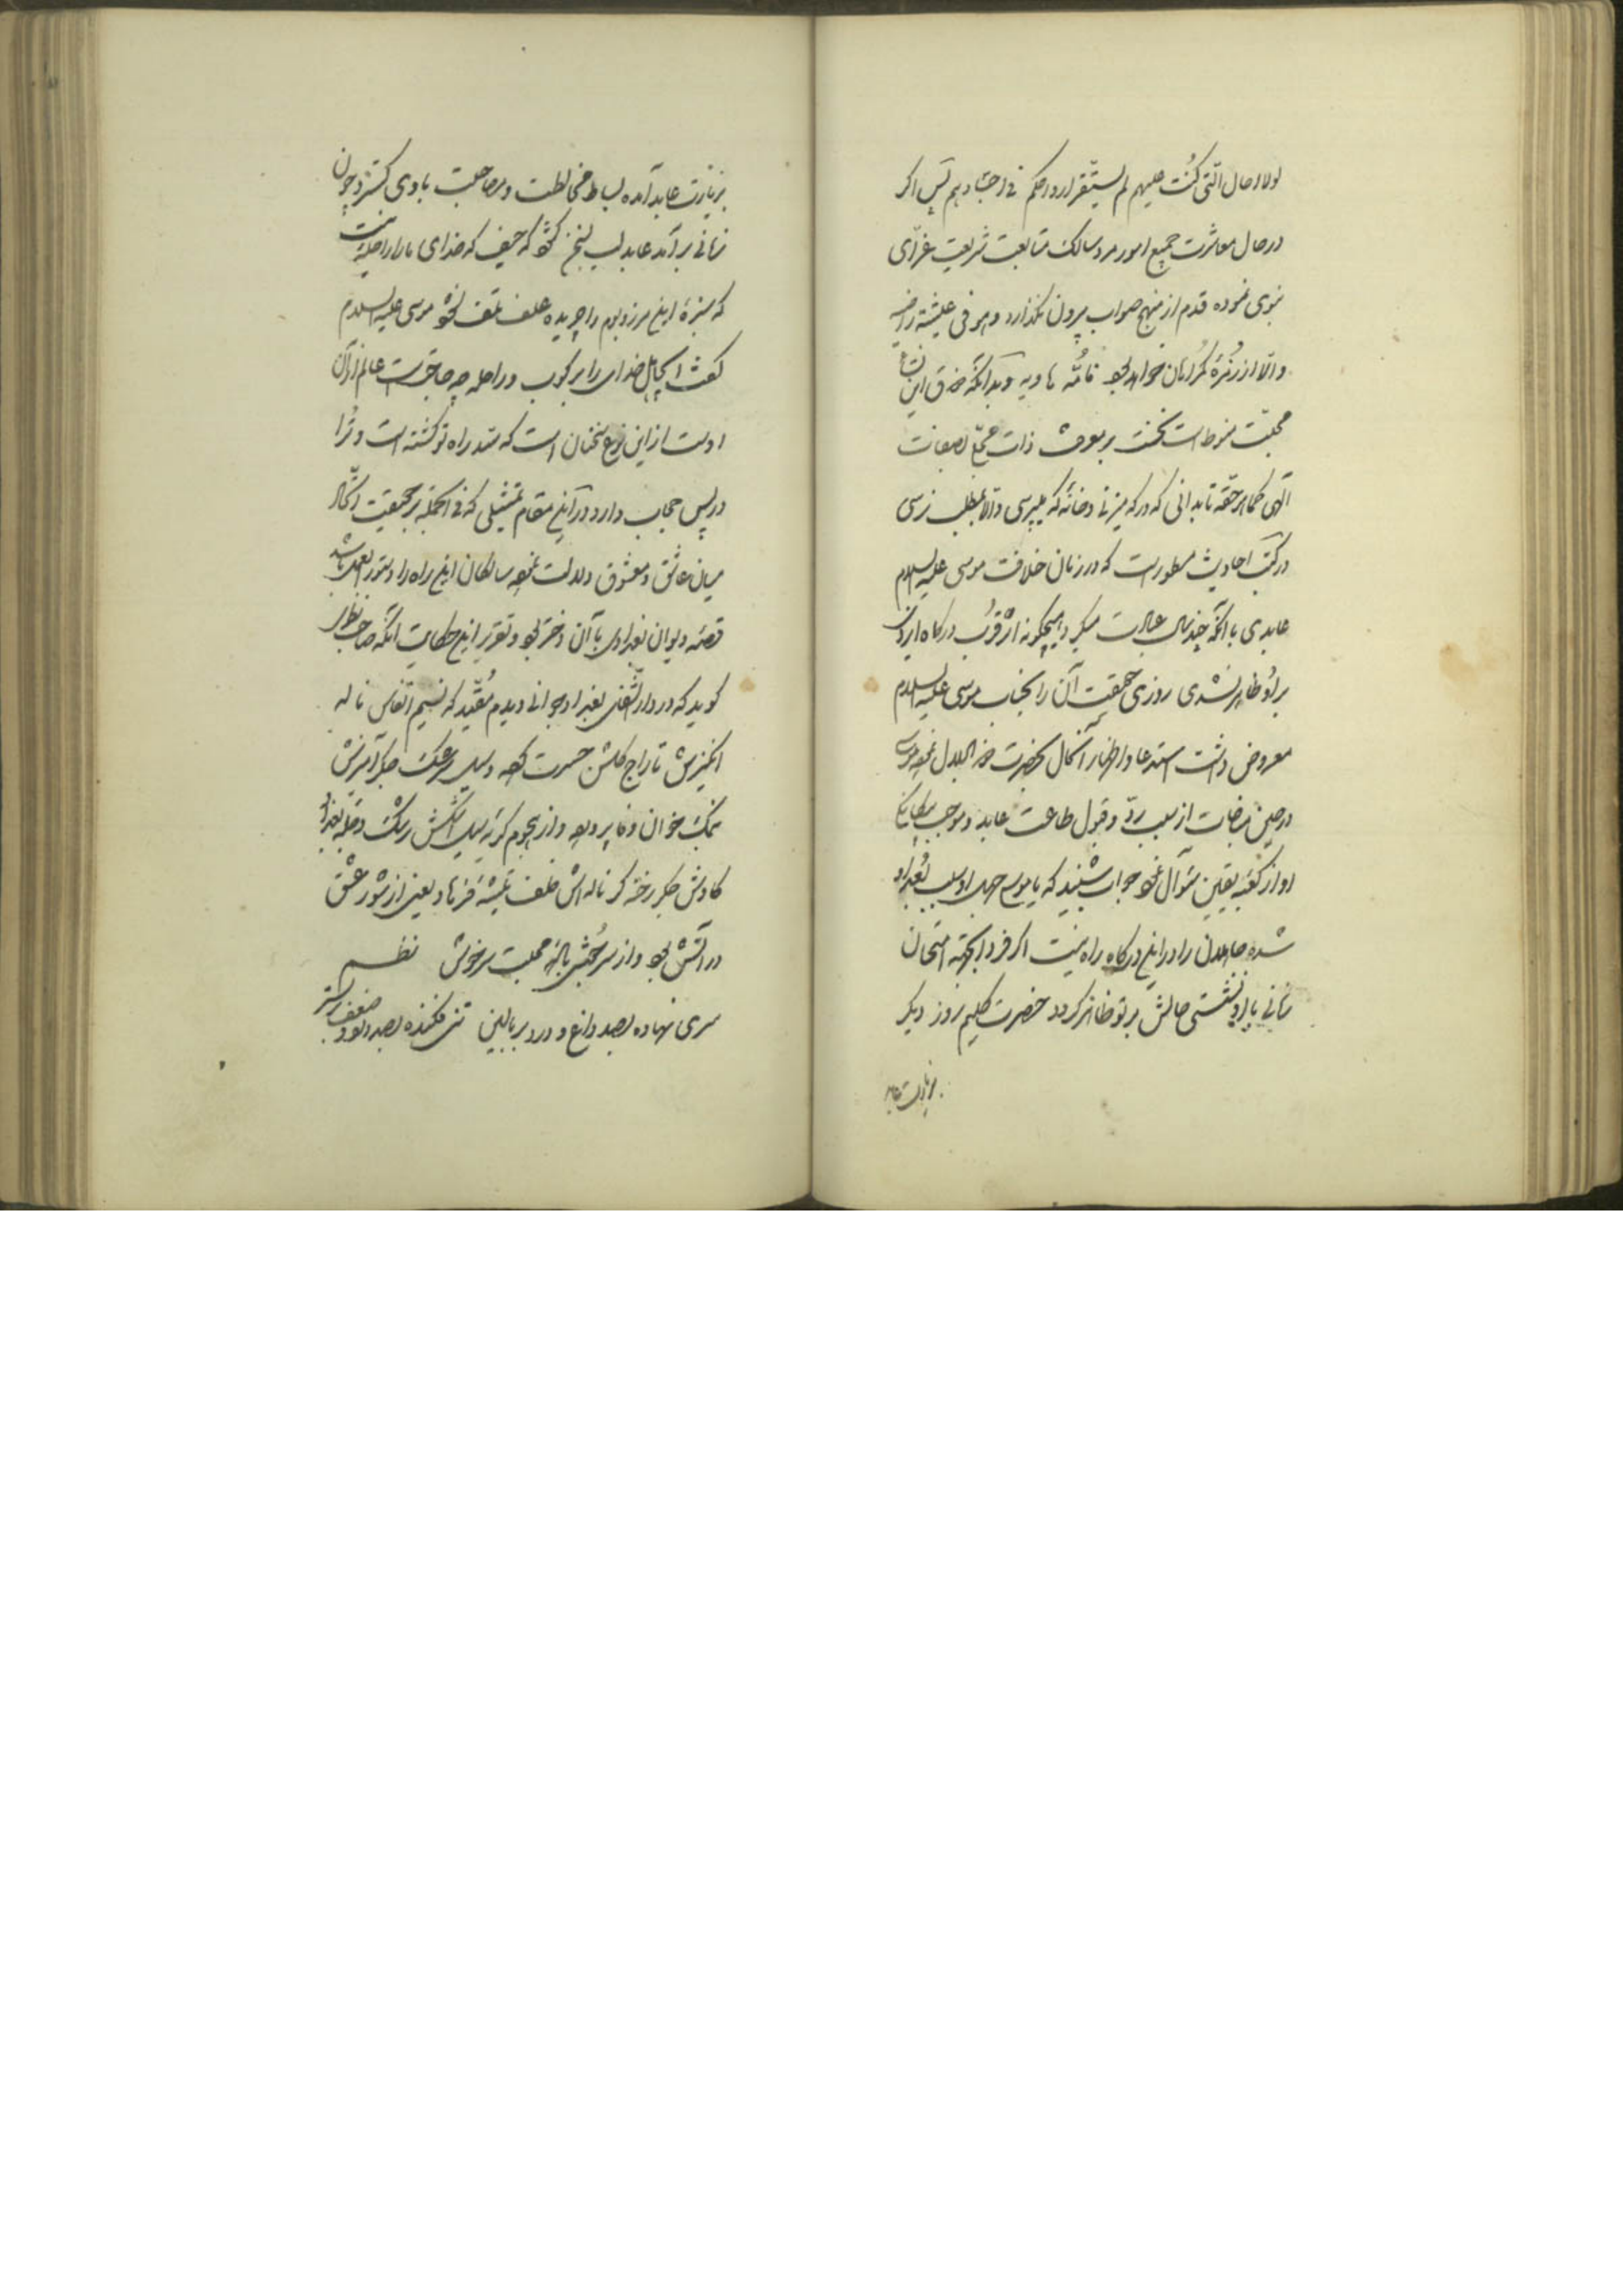 لولا الاجال الّتی کُتبت علیهم لم یستقر ارواحکم فی اجسادهم پس اکر
در حال معاشرت جمیع امور مرد سالک متابعت شریعت غرّای
نبوی نموده قدم از منهج صواب بیرون نکذارد و هو فی عیشة راضیه
و الّا از زمرهٔ کمراهان خواهد بود فامّه هاویه و بدانکه
محبّت منوط است نخست بر معرفت ذات مجمع الصفات
الهی کماهو حقّه تا بدانی که در که میزنی و خانه که میپرسی و الّا بمطلب نرسی
در کتب احادیث مسطور است که در زمان خلافت موسی علیه السلام
عابدی با آنکه چند سال عبادت میکرد هیچکونه اثر قرب درکاه ایزدی
بر او ظاهر نشدی روزی حقیقت آن را بجناب موسی علیه السلام
معروض داشت استدعا و اظهار آنحال بحضرت ذو الجلال نمود موسی
در حین مناجات از سبب ردّ و قبول طاعت عابد و موجب
او از کعبه یقین سؤال نمود جواب شنید که یا موسی جهل او سبب بُعد او
شده جاهلان را در این درکاه راه نیست اکر فردا بجهة امتحان
زمانی با او نشستی حالش بر تو ظاهر کردد حضرت کلیم روز دیکر
بزیارت عابد
بزیارت عابد آمده بساط مخالطت و مصاحبت با وی کسترد چون
زمانی برآمد عابد لب بسخن کشود که حیف که خدای ما را راحله نیست
که سبزهٔ این مرز و بوم را چریده علف تلف نشود موسی علیه السلام
کفت ای جاهل خدای را مرکوب و راحله چه حاجت است عالم از آن
اوست از این نوع سخنان است که سدّ راه تو کشته است و ترا
در پس حجاب دارد در این مقام تمثیلی که فی الجمله بر حقیقت
میان عاشق و معشوق دلالت نموده سالکان این راه را دستور العمل باشد
قصّه دیوانه بغدادی با آن دختر بود و تقریر این حکایت آنکه صاحب نظری
کوید که در دار الشفای بغداد جوانی دیدم مُقیّد که نسیم انفاس ناله
انکیزش تاراج کلشن حسرت کرده و سیل سرشک جکر آمیزش
نمک خوان وفا پرورده و از هجوم کریه سیل اشکش رشک دجله بغداد
کاوش جکر رخنه کر ناله اش خلف تیشه فرهاد یعنی از شور عشق
در آتش بود و از سرخوشی باده محبت سرخوش نظم
سری نهاده بصد داغ و درد بر بالین تنی فکنده بصد ضعف بستر